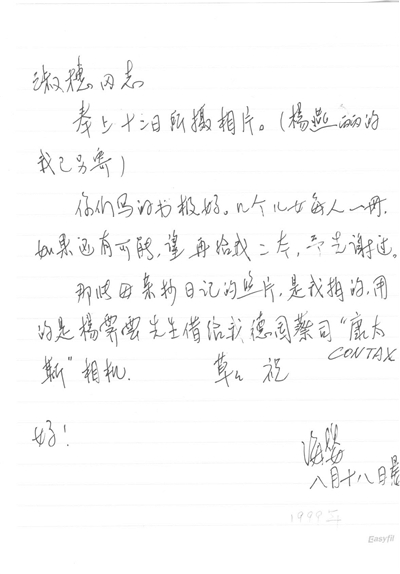 淑穗同志
奉上十二日所摄相片。(楊燕丽的
我已另寄)
你们写的书极好。几个儿女每人一册,
如果还有可能,望再给我二本,予先谢过。
那张母亲抄日记的照片,是我拍的,用
的是楊霁雲先生借给我德国蔡司“康太
CONTAX
斯”相机. 草々 祝
好!
海婴
八月十八日晨
1999年
Easyfil